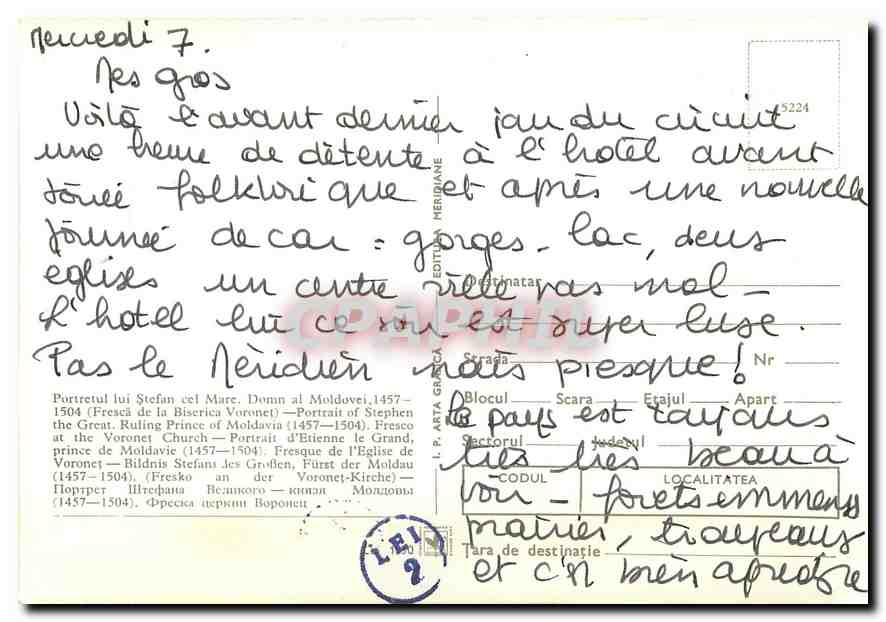 Mercredi 7.
Mes gros
Voilà l'avant dernier jour du circuit
une heure de détente à l'hotel avant
soirée folklorique et après une nouvelle
journée de car = gorges - lac, deux
eglises un centre ville pas mal -
L'hotel lui ce soir est super luxe.
Pas le Méridien mais presque!
Le pays est toujours
très très beau à
voir - forets immenses
prairies, troupeaux
et c'est bien agréable
5224
I. P. ARTA GRAFICĂ EDITURA MERIDIANE
Destinatar
Strada Nr
Blocul Scara Etajul Apart
Sectorul Județul
CODUL LOCALITATEA
Țara de destinație
Portretul lui Ștefan cel Mare. Domn al Moldovei, 1457—
1504 (Frescă de la Biserica Voroneț) — Portrait of Stephen
the Great. Ruling Prince of Moldavia (1457—1504). Fresco
at the Voroneț Church — Portrait d'Etienne le Grand,
prince de Moldavie (1457—1504). Fresque de l'Eglise de
Voroneț — Bildnis Stefans des Großen, Fürst der Moldau
(1457—1504). (Fresko an der Voroneț-Kirche) —
Портрет Штефана Великого — князя Молдовы
(1457—1504). Фреска церкви Воронец
LEI 2
CPAPHIL